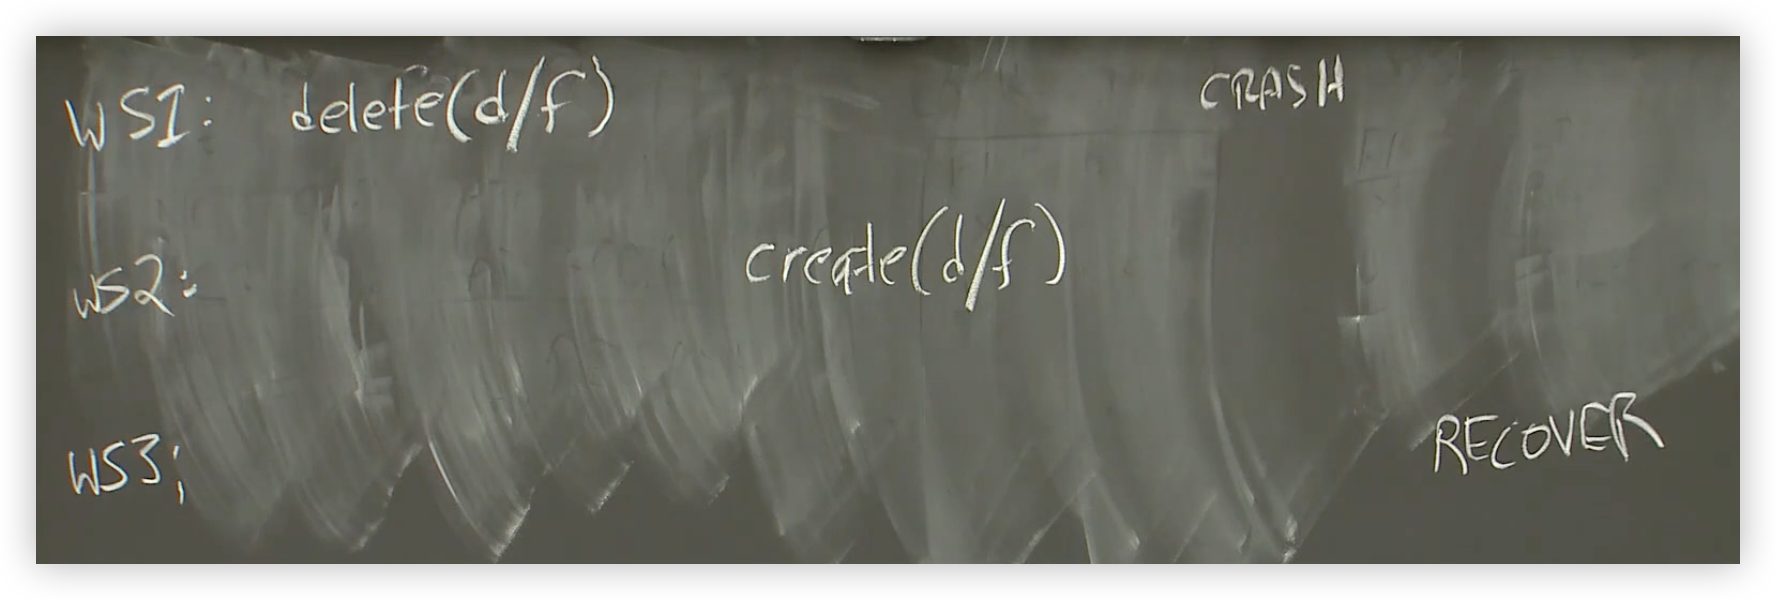 WS1: delete(d/f) CRASH
WS2: create(d/f)
WS3; RECOVER